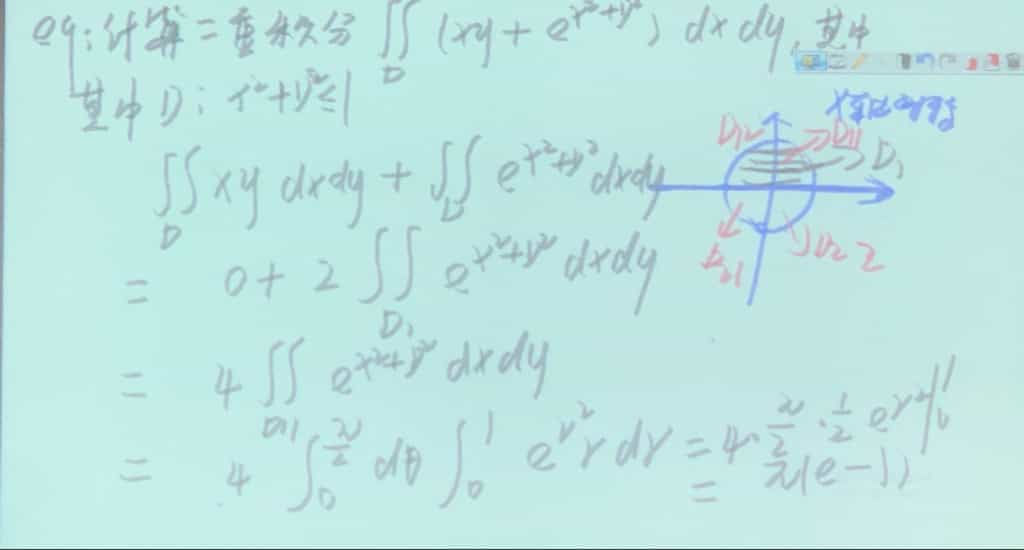 eg: 计算二重积分 ∬_D (xy + e^{x²+y²}) dxdy, 其中
其中 D: x²+y² ≤ 1
∬_D xy dxdy + ∬_D e^{x²+y²} dxdy
= 0 + 2 ∬_{D₁} e^{x²+y²} dxdy
= 4 ∬_{D11} e^{x²+y²} dxdy
= 4 ∫_0^{π/2} dθ ∫_0^1 e^{r²} r dr = 4·π/2·1/2 e^{r²}|_0^1
= π(e-1)
D12
D11
D₁
D21
D22